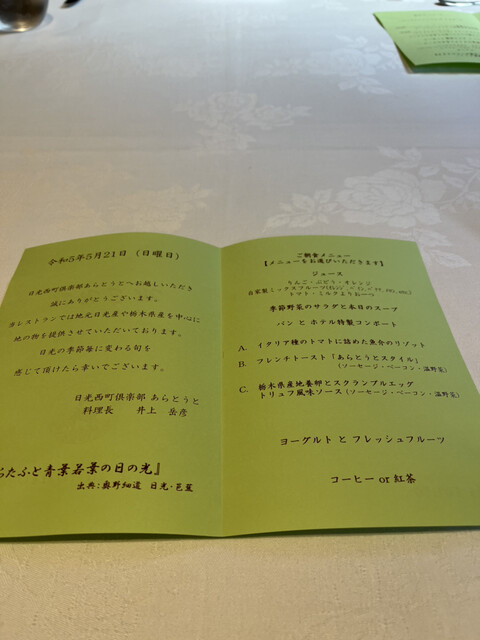 令和5年5月21日（日曜日）
日光西町倶楽部あらとうとへお越しいただき
誠にありがとうございます。
当レストランでは地元日光産や栃木県産を中心に
地の物を提供させていただいております。
日光の季節毎に変わる旬を
感じて頂けたら幸いでございます。
日光西町倶楽部 あらとうと
料理長 井上 岳彦
らたふと青葉若葉の日の光』
出典：奥野細道 日光・芭蕉
ご朝食メニュー
【メニューをお選びいただきます】
ジュース
りんご・ぶどう・オレンジ
自家製ミックスフルーツ
トマト・ミルクより お一つ
季節野菜のサラダと本日のスープ
パン と ホテル特製コンポート
A. イタリア種のトマトに詰めた魚介のリゾット
B. フレンチトースト「あらとうとスタイル」
（ソーセージ・ベーコン・温野菜）
C. 栃木県産地養卵とスクランブルエッグ
トリュフ風味ソース（ソーセージ・ベーコン・温野菜）
ヨーグルト と フレッシュフルーツ
コーヒー or 紅茶